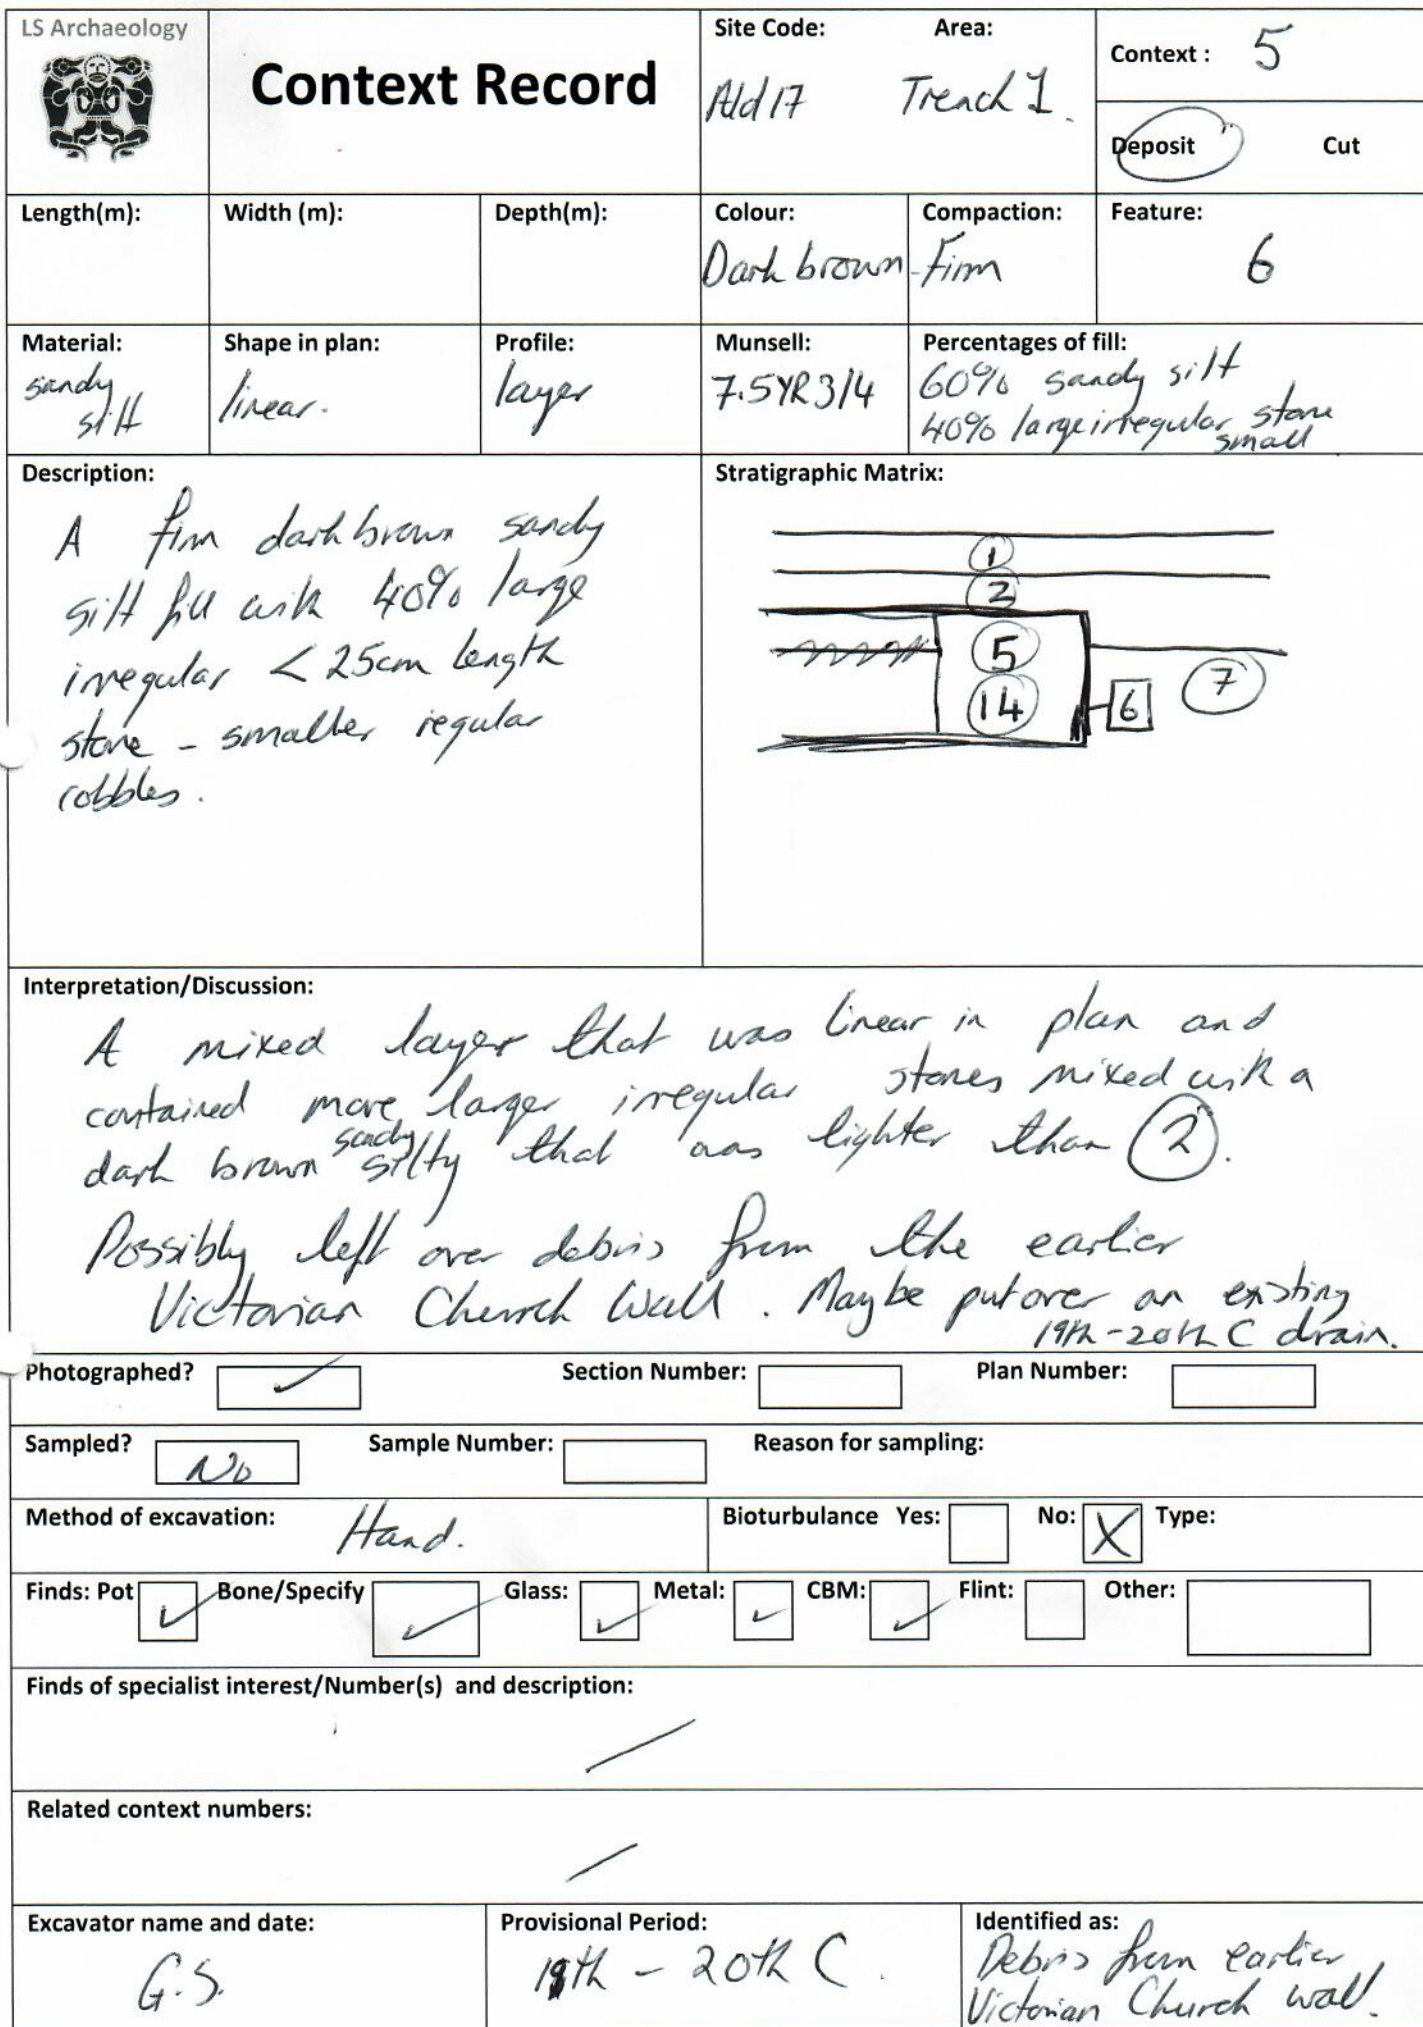 LS Archaeology
Context Record
Site Code: Area:
Ald 17 Trench 1.
Context : 5
Deposit Cut
Length(m): Width (m): Depth(m): Colour: Compaction: Feature:
Dark brown Firm 6
Material: Shape in plan: Profile: Munsell: Percentages of fill:
sandy silt
linear.
layer
7.5YR 3/4
60% sandy silt
40% large irregular stone
small
Description:
A firm dark brown sandy
silt fill with 40% large
irregular < 25cm length
stone - smaller regular
cobbles.
Stratigraphic Matrix:
1
2
5
14
6
7
Interpretation/Discussion:
A mixed layer that was linear in plan and
contained more larger irregular stones mixed with a
dark brown sandy silty that was lighter than 2.
Possibly left over debris from the earlier
Victorian Church Wall. Maybe put over an existing
19th-20th C drain.
Photographed? ✓ Section Number: Plan Number:
Sampled? No Sample Number: Reason for sampling:
Method of excavation: Hand. Bioturbulance Yes: No: X Type:
Finds: Pot ✓ Bone/Specify ✓ Glass: ✓ Metal: ✓ CBM: ✓ Flint: Other:
Finds of specialist interest/Number(s) and description:
/
Related context numbers:
/
Excavator name and date:
G.S.
Provisional Period:
19th - 20th C.
Identified as:
Debris from earlier
Victorian Church wall.